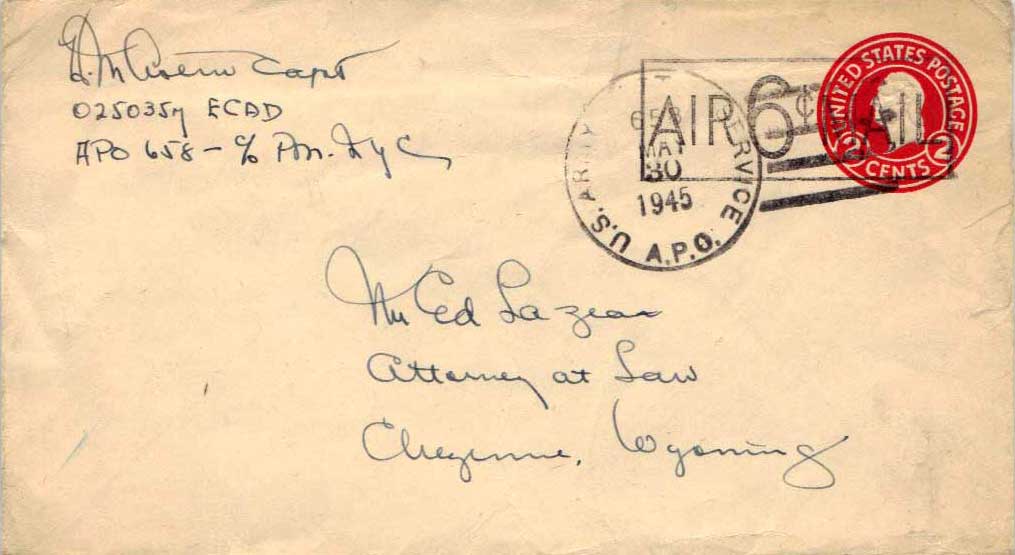 Capt
0250357 ECAD
APO 658 - c/o P.M. N.Y.C.
U.S. ARMY SERVICE
658
MAY
30
1945
A.P.O.
AIR 6¢ MAIL
UNITED STATES POSTAGE
2 CENTS 2
Mr Ed Lazear
Attorney at Law
Cheyenne, Wyoming